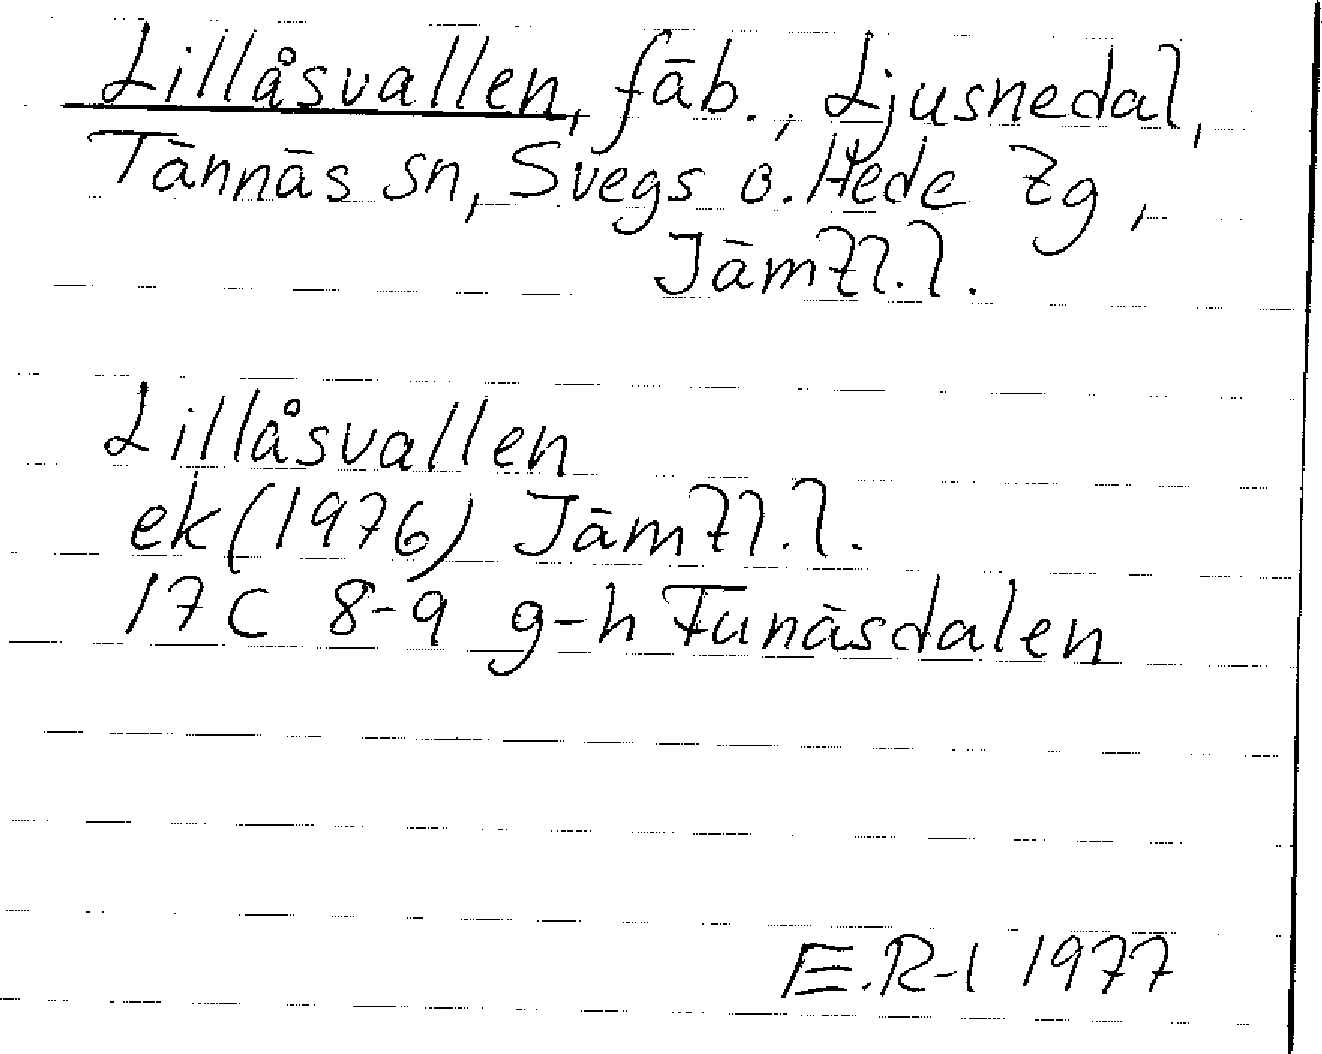 Lillåsvallen, fäb., Ljusnedal,
Tännäs sn, Svegs o. Hede tg,
Jämtl.l.
Lillåsvallen
ek (1976) Jämtl.l.
17C 8-9 g-h Funäsdalen
E.R-l 1977